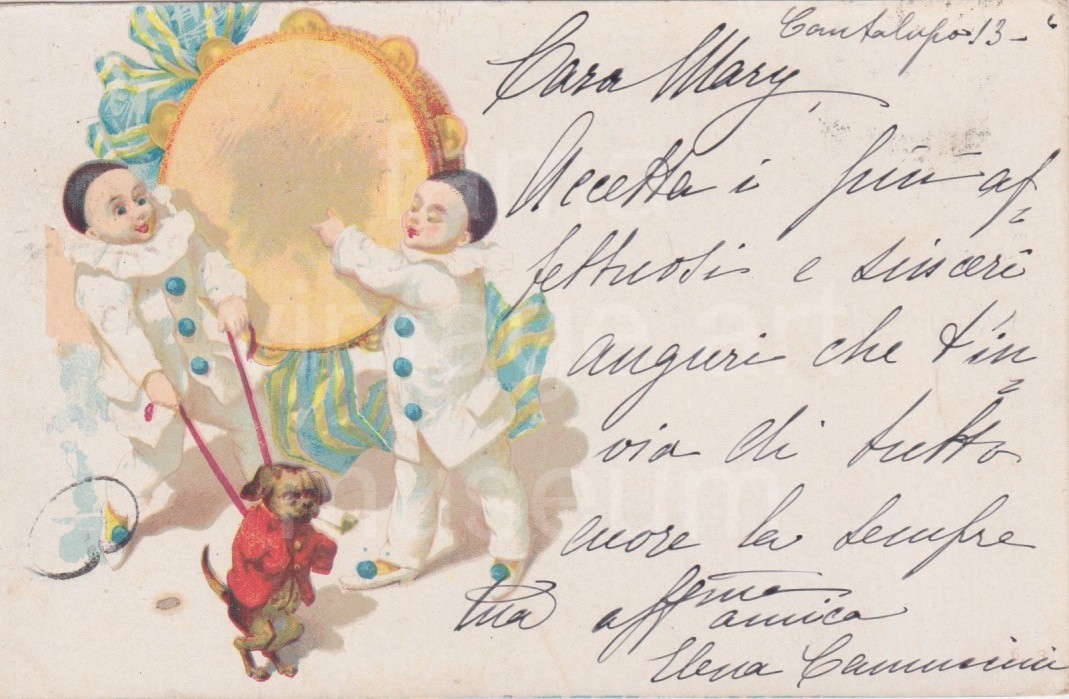 Cantalupo 13-6
Cara Mary,
Accetta i più af=
fettuosi e sinceri
auguri che t'in=
via di tutto
cuore la sempre
tua aff.ema amica
Elena Camuccini
fama
vintage art
museum